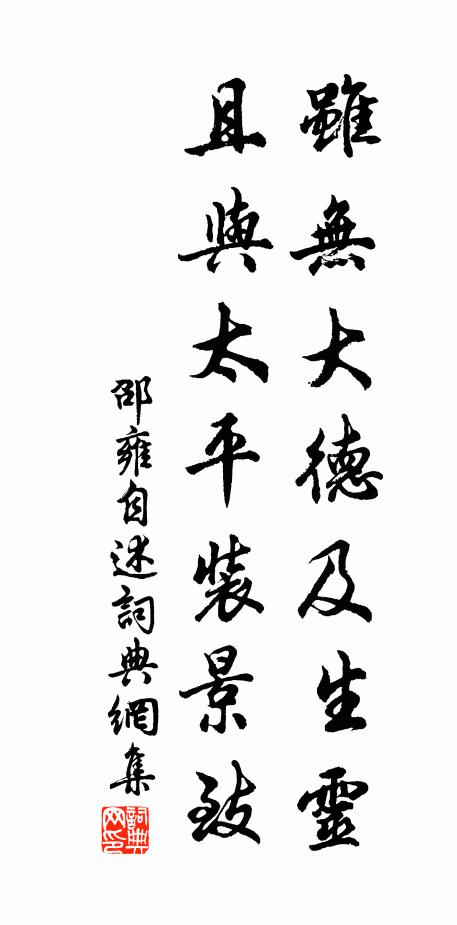 雖無大德及生靈
且與太平裝景致
邵雍自述詞典網集
詞典网印